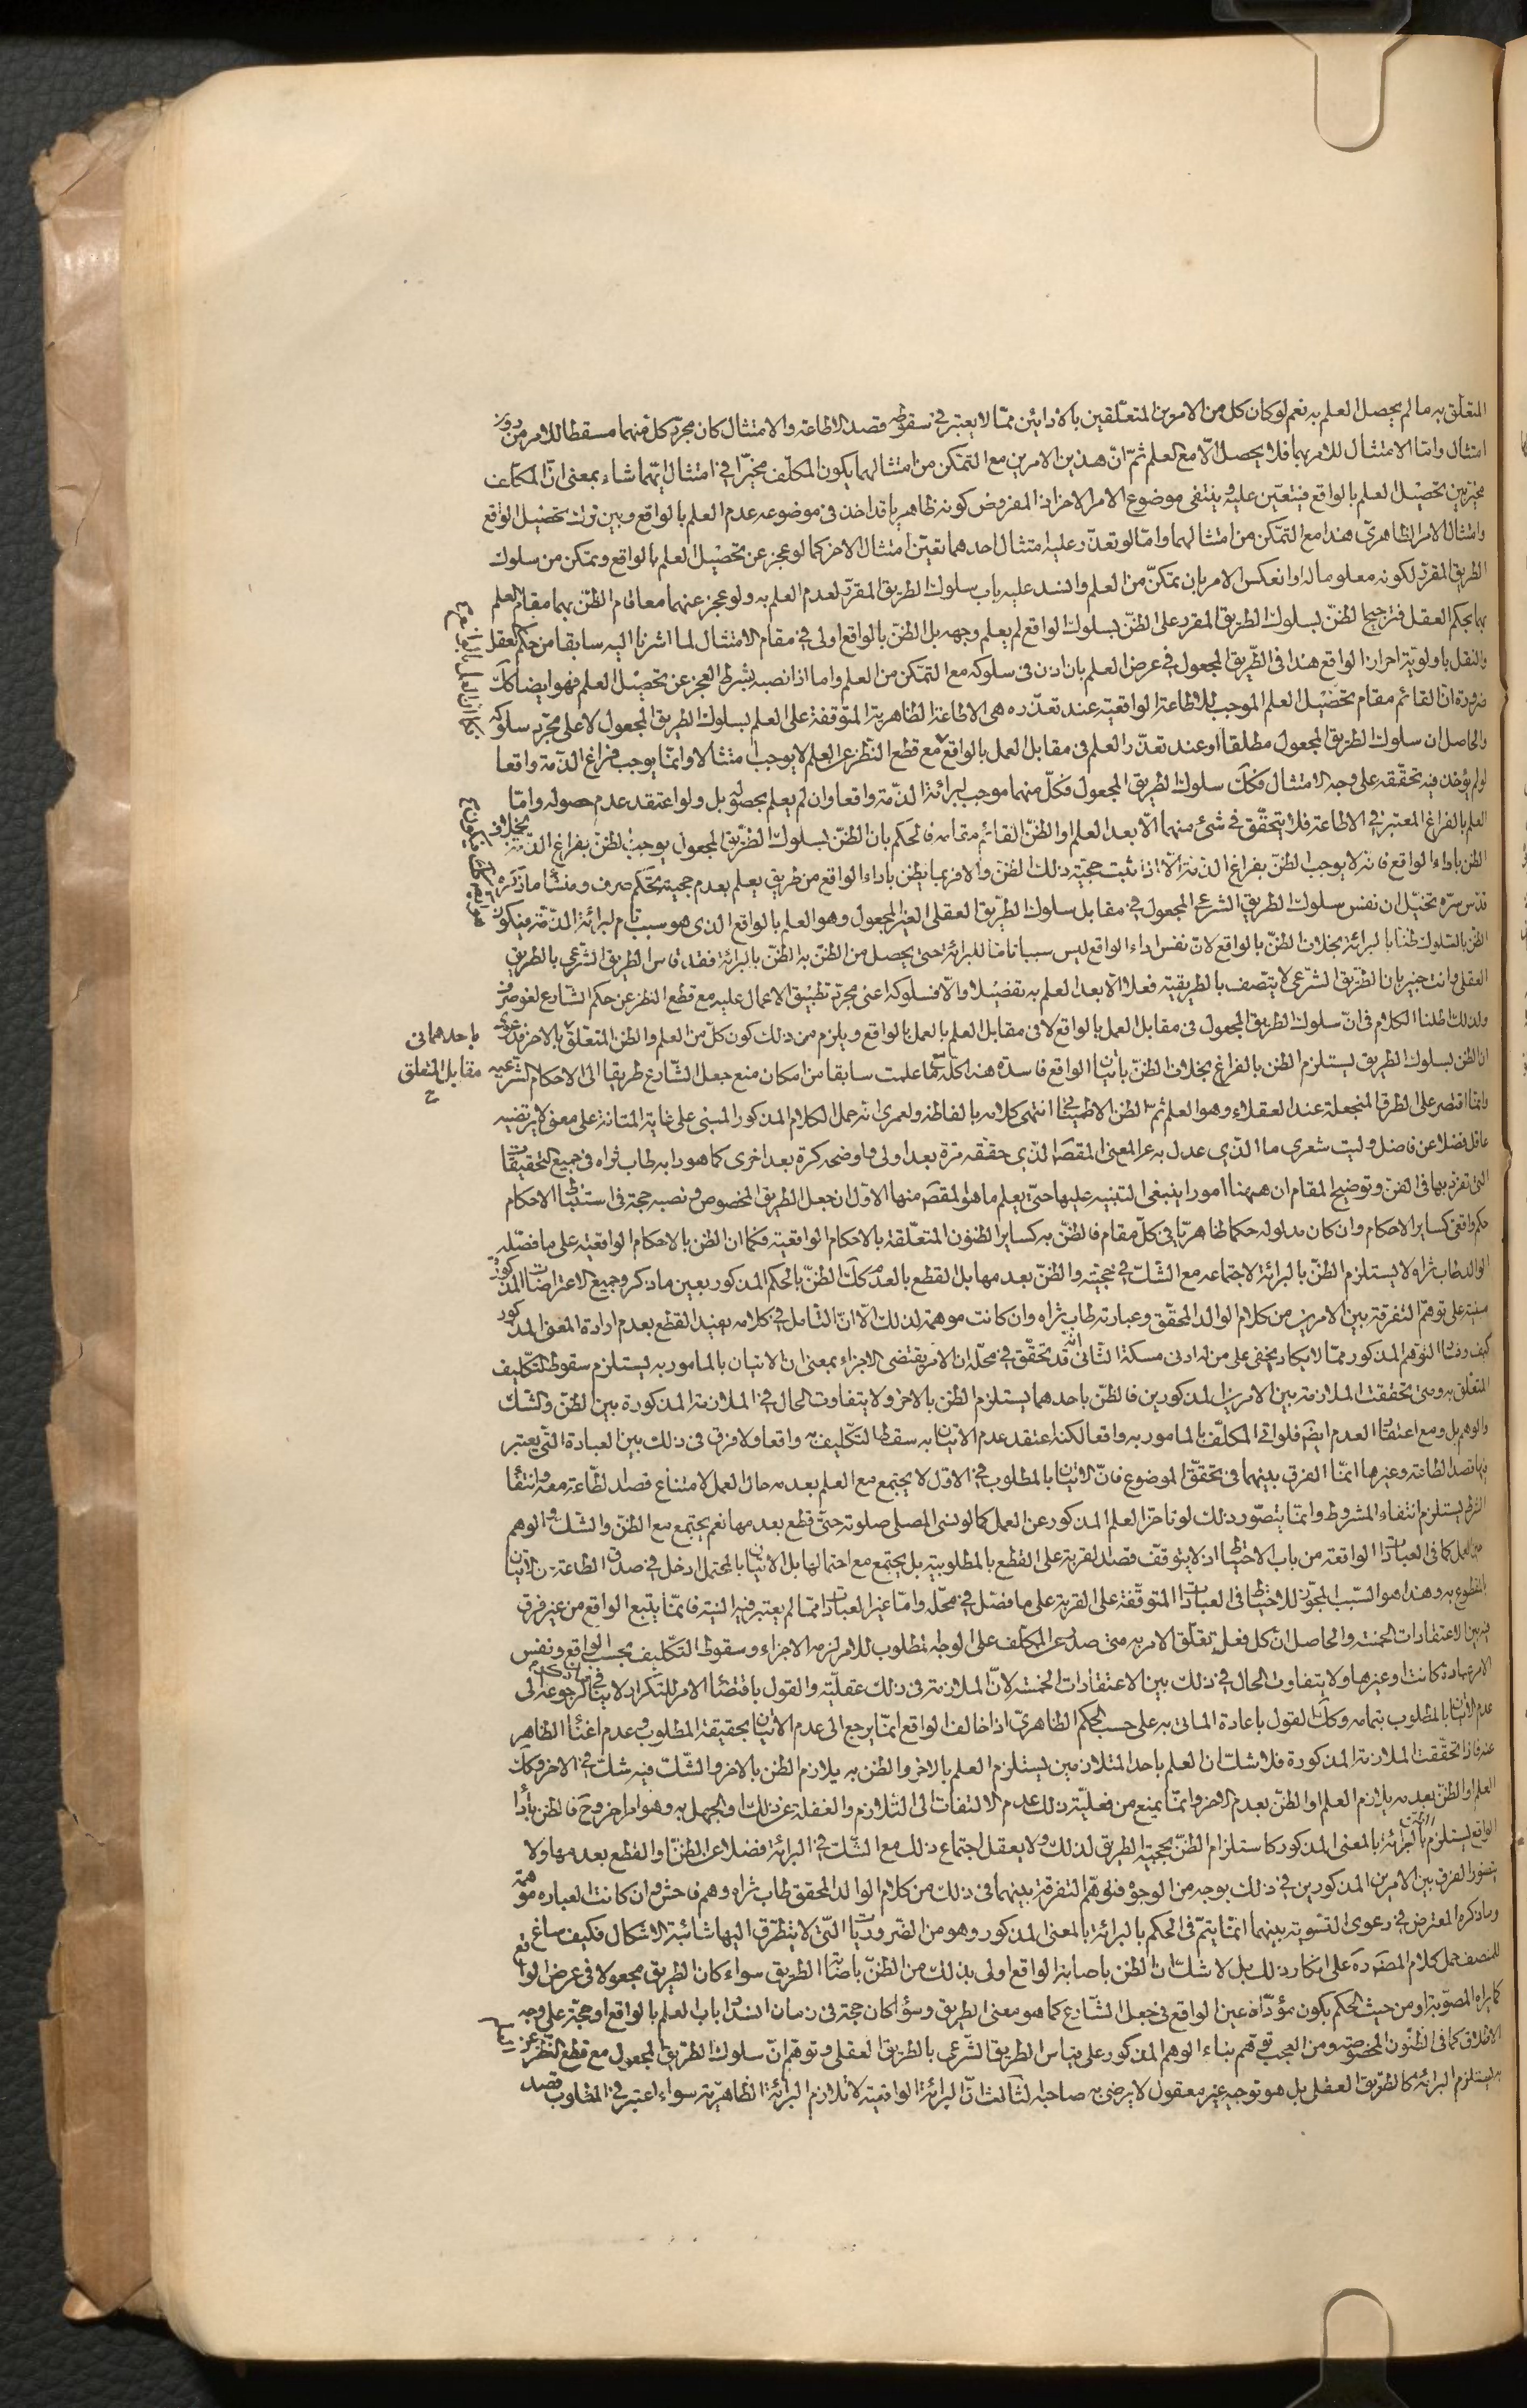 المتعلق به ما لم يحصل العلم به نعم لو كان كل من الامرين المتعلّقين بالادائين ممّا لا يعتبر في سقوطه قصد الاطاعة والامتثال كان مجرّد كل منهما مسقطا للامر من دون
امتثال وامّا الامتثال للامر بهما فلا يحصل الّا مع العلم ثمّ انّ هذين الامرين مع التمكن من امتثالهما يكون المكلّف مخيّرا في امتثال ايّهما شاء بمعنى انّ المكلف
مخيّر بين تحصيل العلم بالواقع فيتعيّن عليه وينتفى موضوع الامر الاخر اذ المفروض كونه ظاهريا قد اخذ فى موضوعه عدم العلم بالواقع وبين ترك تحصيل الواقع
وامتثال الامر الظاهرى هذا مع التمكن من امتثالهما وامّا لو تعذّر عليه امتثال احدهما تعيّن امتثال الاخر كما لو عجز عن تحصيل العلم بالواقع وتمكن من سلوك
الطريق المقرّر لكونه معلوما له او انعكس الامر بان تمكّن من العلم وانسد عليه باب سلوك الطريق المقرّر لعدم العلم به ولو عجز عنهما معا قام الظنّ بهما مقام العلم
بهما بحكم العقل فترجيح الظنّ بسلوك الطريق المقرر على الظنّ بسلوك الواقع لم يعلم وجهه بل الظنّ بالواقع اولى في مقام الامتثال لما اشرنا اليه سابقا من حكم العقل
والنقل باولويّة احراز الواقع هذا فى الطّريق المجعول في عرض العلم بان اذن فى سلوكه مع التمكن من العلم واما اذا نصبه بشرط العجز عن تحصيل العلم فهو ايضا كك
ضرورة ان القائم مقام تحصيل العلم الموجب للاطاعة الواقعية عند تعذّره هى الاطاعة الظاهرية المتوقفة على العلم بسلوك الطريق المجعول لا على مجرّد سلوكه
والحاصل ان سلوك الطريق المجعول مطلقا او عند تعذّر العلم فى مقابل العمل بالواقع مع قطع النّظر عن العلم لا يوجب امتثالا وانّما يوجب فراغ الذّمة واقعا
لو لم يؤخذ فيه تحقّقه على وجه الامتثال فكك سلوك الطريق المجعول فكلّ منهما موجب لبرائة الذّمة واقعا وان لم يعلم بحصوله بل ولو اعتقد عدم حصوله وامّا
العلم بالفراغ المعتبر في الاطاعة فلا يتحقّق في شئ منهما الّا بعد العلم او الظنّ القائم مقامه فالحكم بان الظنّ بسلوك الطّريق المجعول يوجب الظنّ بفراغ الذّمة بخلاف
الظن باداء الواقع فانه لا يوجب الظنّ بفراغ الذّمة الّا اذا ثبت حجيّة ذلك الظنّ والا فربما يظنّ باداء الواقع من طريق يعلم بعدم حجيته تحكّم صرف ومنشأ ما ذكره
قدّس سرّه تخيّل ان نفس سلوك الطريق الشرعى المجعول في مقابل سلوك الطّريق العقلى الغير المجعول وهو العلم بالواقع الذى هو سبب تام لبرائة الذّمة فيكون
الظنّ بالسلوك ظنّا بالبرائة بخلاف الظنّ بالواقع لانّ نفس اداء الواقع ليس سببا تامّا للبرائة حتى يحصل من الظنّ به الظنّ بالبرائة فقد قاس الطريق الشّرعى بالطريق
العقلى وانت خبير بان الطّريق الشرعى لا يتصف بالطريقية فعلا الّا بعد العلم به تفصيلا والّا فسلوكه اعنى مجرّد تطبيق الاعمال عليه مع قطع النظر عن حكم الشّارع لغو صرف
ولذلك اطلنا الكلام فى انّ سلوك الطريق المجعول فى مقابل العمل بالواقع لا فى مقابل العلم بالعمل بالواقع ويلزم من ذلك كون كلّ من العلم والظن المتعلّق بالاخر فدعوى
ان الظن بسلوك الطريق يستلزم الظن بالفراغ بخلاف الظنّ باتيان الواقع فاسدة هذا كلّه مما علمت سابقا من امكان منع جعل الشّارع طريقا الى الاحكام الشرعيه
باحدهما فى
مقابل المتعلق
وانّما اقتصر على الطرق المنجعلة عند العقلاء وهو العلم ثمّ الظن الاطميناني انتهى كلامه بالفاظه ولعمرى انه حمل الكلام المذكور المبنى على غاية المتانة على معنى لا يرتضيه
عاقل فضلا عن فاضل وليت شعرى ما الّذي عدل به عن المعنى المقصود الّذى حقّقه مرّة بعد اولى واوضحه كرة بعد اخرى كما هو دابه طاب ثراه فى جميع التحقيقات
التى تفرّد بها فى الفنّ وتوضيح المقام ان ههنا امورا ينبغى التنبيه عليها حتّى يعلم ما هو المقصّ منها الاوّل ان جعل الطريق المخصوص ونصبه حجة فى استنباط الاحكام
حكم واقعى كساير الاحكام وان كان مدلوله حكما ظاهريّا في كلّ مقام فالظنّ به كساير الظنون المتعلّقة بالاحكام الواقعية فكما ان الظن بالاحكام الواقعية على ما فصّله
الوالد طاب ثراه لا يستلزم الظنّ بالبرائة لاجتماعه مع الشّك في حجيّته والظنّ بعدمها بل القطع بالعدم كك الظنّ بالحكم المذكور بعين ما ذكر وجميع الاعتراضات المذكورة
مبنية على توهّم التفرقة بين الامرين من كلام الوالد المحقّق وعبارته طاب ثراه وان كانت موهمة لذلك الّا انّ التامل في كلامه يفيد القطع بعدم ارادة المعنى المذكور
كيف وفساد التوهم المذكور ممّا لا يكاد يخفى على من له ادنى مسكة الثّانى انّه قد تحقّق في محلّه ان الامر يقتضى الاجزاء بمعنى ان الاتيان بالمامور به يستلزم سقوط التّكليف
المتعلّق به ومتى تحققت الملازمة بين الامرين المذكورين فالظنّ باحدهما يستلزم الظن بالاخر ولا يتفاوت الحال في الملازمة المذكورة بين الظنّ والشك
والوهم بل ومع اعتقاد العدم ايضا فلو اتى المكلّف بالمامور به واقعا لكنه اعتقد عدم الاتيان به سقط التّكليف به واقعا ولا فرق فى ذلك بين العبادة التّى يعتبر
فيها قصد الطاعة وغيرها انّما الفرق بينهما فى تحقّق الموضوع فانّ الاتيان بالمطلوب في الاوّل لا يجتمع مع العلم بعدمه حال العمل لامتناع قصد الطّاعة معه وانتفاء
الشرط يستلزم انتفاء المشروط وانّما يتصّور ذلك لو تاخّر العلم المذكور عن العمل كما لو نسى المصلى صلوته حتّى قطع بعدمها نعم يجتمع مع الظنّ والشك والوهم
حين العمل كما فى العبادات الواقعة من باب الاحتياط اذ لا يتوقّف قصد القربة على القطع بالمطلوبية بل يجتمع مع احتمالها بل الاتيان بالمحتمل ادخل في صدق الطاعة من الاتيان
بالمقطوع به وهذا هو السّبب المجوّز للاحتياط فى العبادات المتوقّفة على القربة على ما فصّل في محلّه وامّا غير العبادات ممّا لم يعتبر فيه النية فانّما يتبع الواقع من غير فرق
فيه بين الاعتقادات الخمسة والحاصل ان كل فعل تعلّق الامر به متى صدر عن المكلّف على الوجه المطلوب للامر لزمه الاجزاء وسقوط التّكليف بحسب الواقع ونفس
الامر عبادة كانت او غيرها ولا يتفاوت الحال في ذلك بين الاعتقادات الخمسة لانّ الملازمة فى ذلك عقليّة والقول باقتضاء الامر للتكرار لا ينافى ذلك لرجوعه الى
عدم الاتيان بالمطلوب بتمامه وكك القول باعادة الماتى به على حسب الحكم الظاهريّ اذا خالف الواقع انّما يرجع الى عدم الاتيان بحقيقة المطلوب وعدم اغناء الظاهر
عنه فاذا تحقّقت الملازمة المذكورة فلا شك ان العلم باحد المتلازمين يستلزم العلم بالاخر والظن به يلازم الظن بالاخر والشّك فيه شك في الاخر وكك
العلم او الظنّ بعدمه يلازم العلم او الظنّ بعدم الاخر وانّما يمنع من فعليّة ذلك عدم الالتفات الى التّلازم والغفلة عن ذلك او الجهل به وهو امر اخر وح فالظن باداء
الواقع يستلزم الظن بالبرائة بالمعنى المذكور كاستلزام الظنّ بحجية الطريق لذلك ولا يعقل اجتماع ذلك مع الشّك في البرائة فضلا عن الظنّ او القطع بعدمها ولا
يتصّور الفرق بين الامرين المذكورين في ذلك بوجه من الوجوه فتوهّم التفرقة بينهما فى ذلك من كلام الوالد المحقق طاب ثراه وهم فاحش وان كانت العباره موهمة
وما ذكره المعترض في دعوى التّسوية بينهما انّما يتمّ فى الحكم بالبرائة بالمعنى المذكور وهو من الضروريات الّتى لا يتطّرق اليها شائبة الاشكال فكيف ساغ
للمنصف حمل كلام المصنف ره على انكار ذلك بل لا شكّ ان الظن باصابة الواقع اولى بذلك من الظنّ باصابة الطريق سواء كان الطريق مجعولا فى عرض الواقع
كما يراه المصوّبة او من حيث الحكم بكون مؤدّاه عين الواقع فى جعل الشّارع كما هو معنى الطريق وسواء كان حجة فى زمان انسداد باب العلم بالواقع او حجّة على وجه
الاطلاق كما فى الظنون المخصوصة ومن العجب توهم بناء الوهم المذكور على قياس الطريق الشّرعى بالطّريق العقلى وتوهّم انّ سلوك الطّريق المجعول مع قطع النّظر عن العلم
به يستلزم البرائة كالطّريق العقلى بل هو توجيه غير معقول لا يرضى به صاحبه الثّالث انّ البرائة الواقعية لا تلازم البرائة الظاهريّة سواء اعتبر في المطلوب قصد